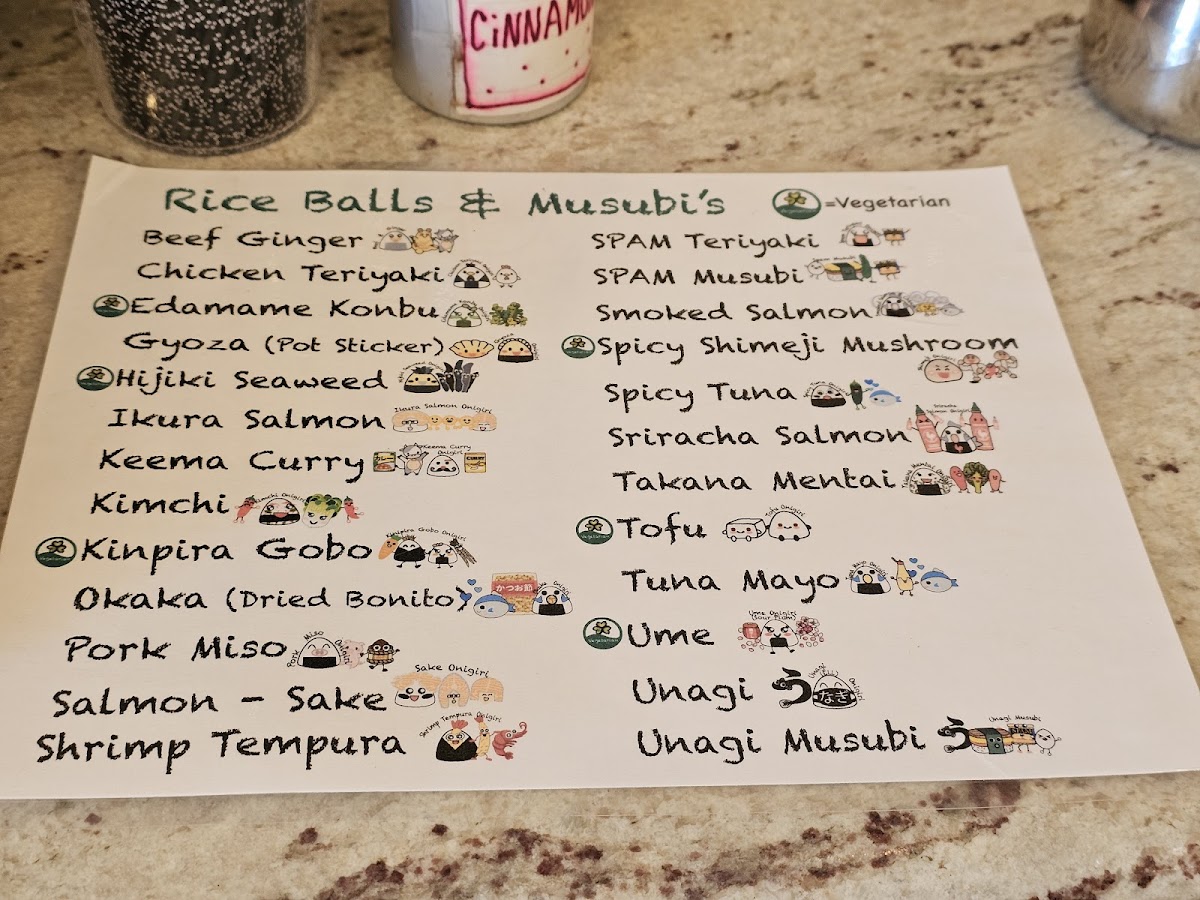 CINNAMO
Rice Balls & Musubi's
=Vegetarian
Beef Ginger
Chicken Teriyaki
Edamame Konbu
Gyoza (Pot Sticker)
Hijiki Seaweed
Ikura Salmon
Ikura Salmon Onigiri
Keema Curry
Keema Curry Onigiri
CURRY
Kimchi
Kimchi Onigiri
Kinpira Gobo
Kinpira Gobo Onigiri
Okaka (Dried Bonito)
かつお節
Pork Miso
Pork Miso Onigiri
Salmon - Sake
Sake Onigiri
Shrimp Tempura
Shrimp Tempura Onigiri
SPAM Teriyaki
SPAM Musubi
Smoked Salmon
Vegetarian
Spicy Shimeji Mushroom
Spicy Tuna
Sriracha Salmon
Takana Mentai
Takana Mentai Onigiri
Vegetarian
Tofu
Tofu Onigiri
Tuna Mayo
Vegetarian
Ume
Ume Onigiri
(Sour Plum)
Unagi
うなぎ
Unagi Onigiri
Unagi Musubi
う
Unagi Musubi